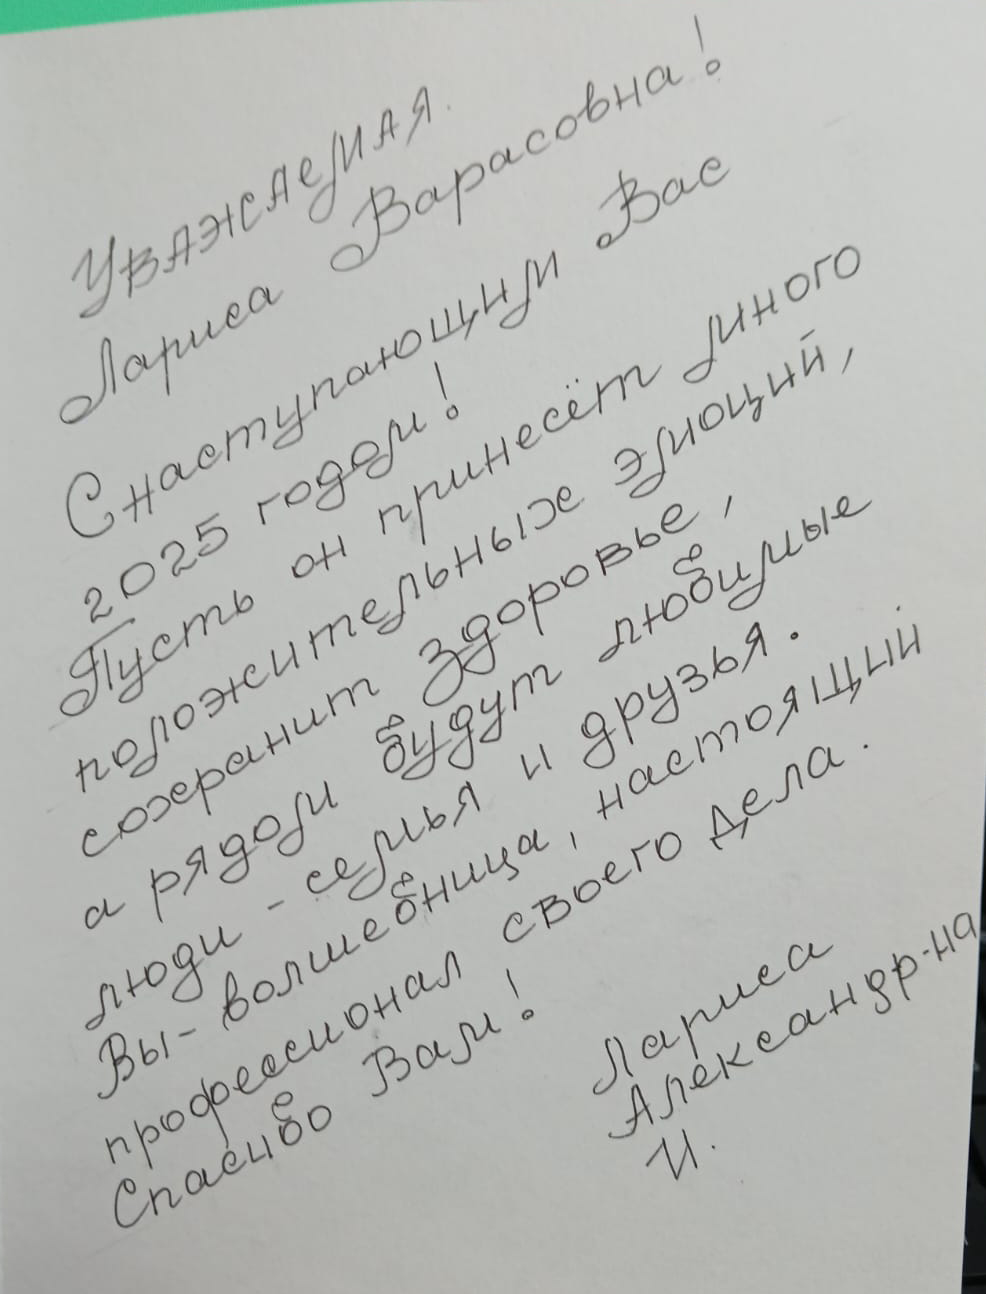 Уважаемая
Лариса Варасовна!
С наступающим Вас
2025 годом!
Пусть он принесёт много
положительных эмоций,
сохранит здоровье,
а рядом будут любимые
люди - семья и друзья.
Вы - волшебница, настоящий
профессионал своего дела.
Спасибо Вам!
Лариса
Александр-на
И.